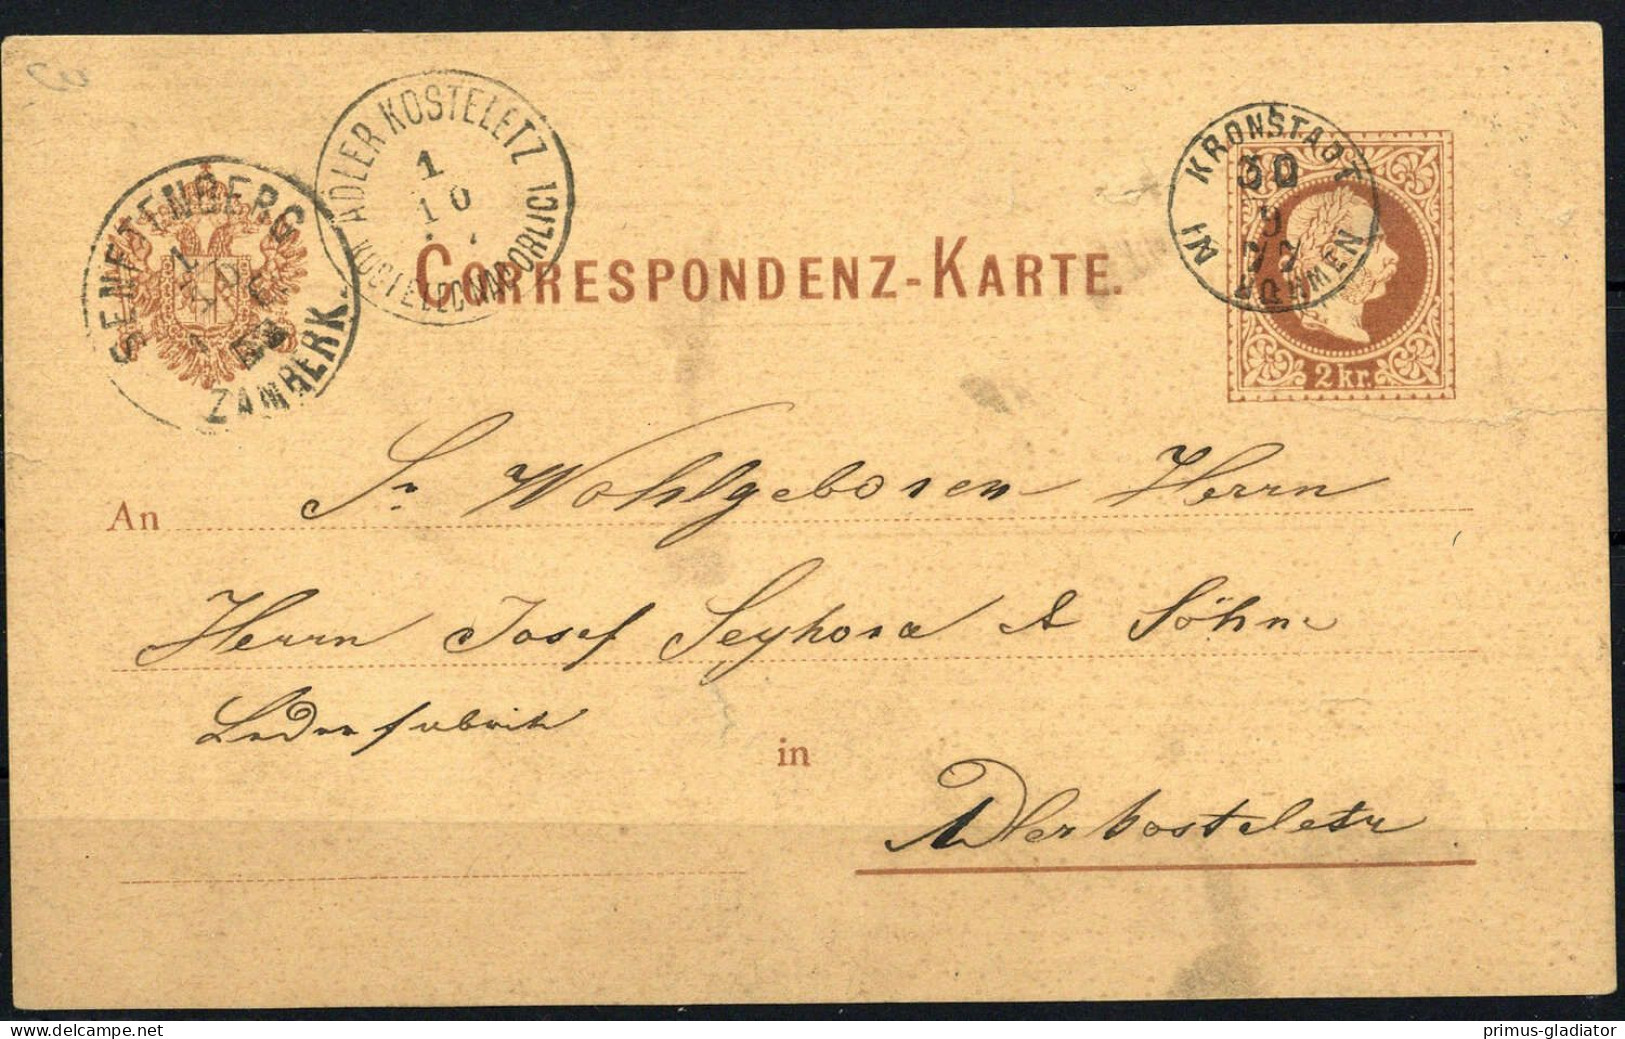 ADLER KOSTELETZ
1
10
KOSTELEC NAD ORLICI
KRONSTADT
30
9
77
IN BÖHMEN
SENFTENBERG
1
10
ZAMBERK.
CORRESPONDENZ-KARTE.
2 kr.
An Sr Wohlgeboren Herrn
Herrn Josef Seykora & Söhne
Lederfabrik
in
Adlerkosteletz
www.delcampe.net
primus-gladiator